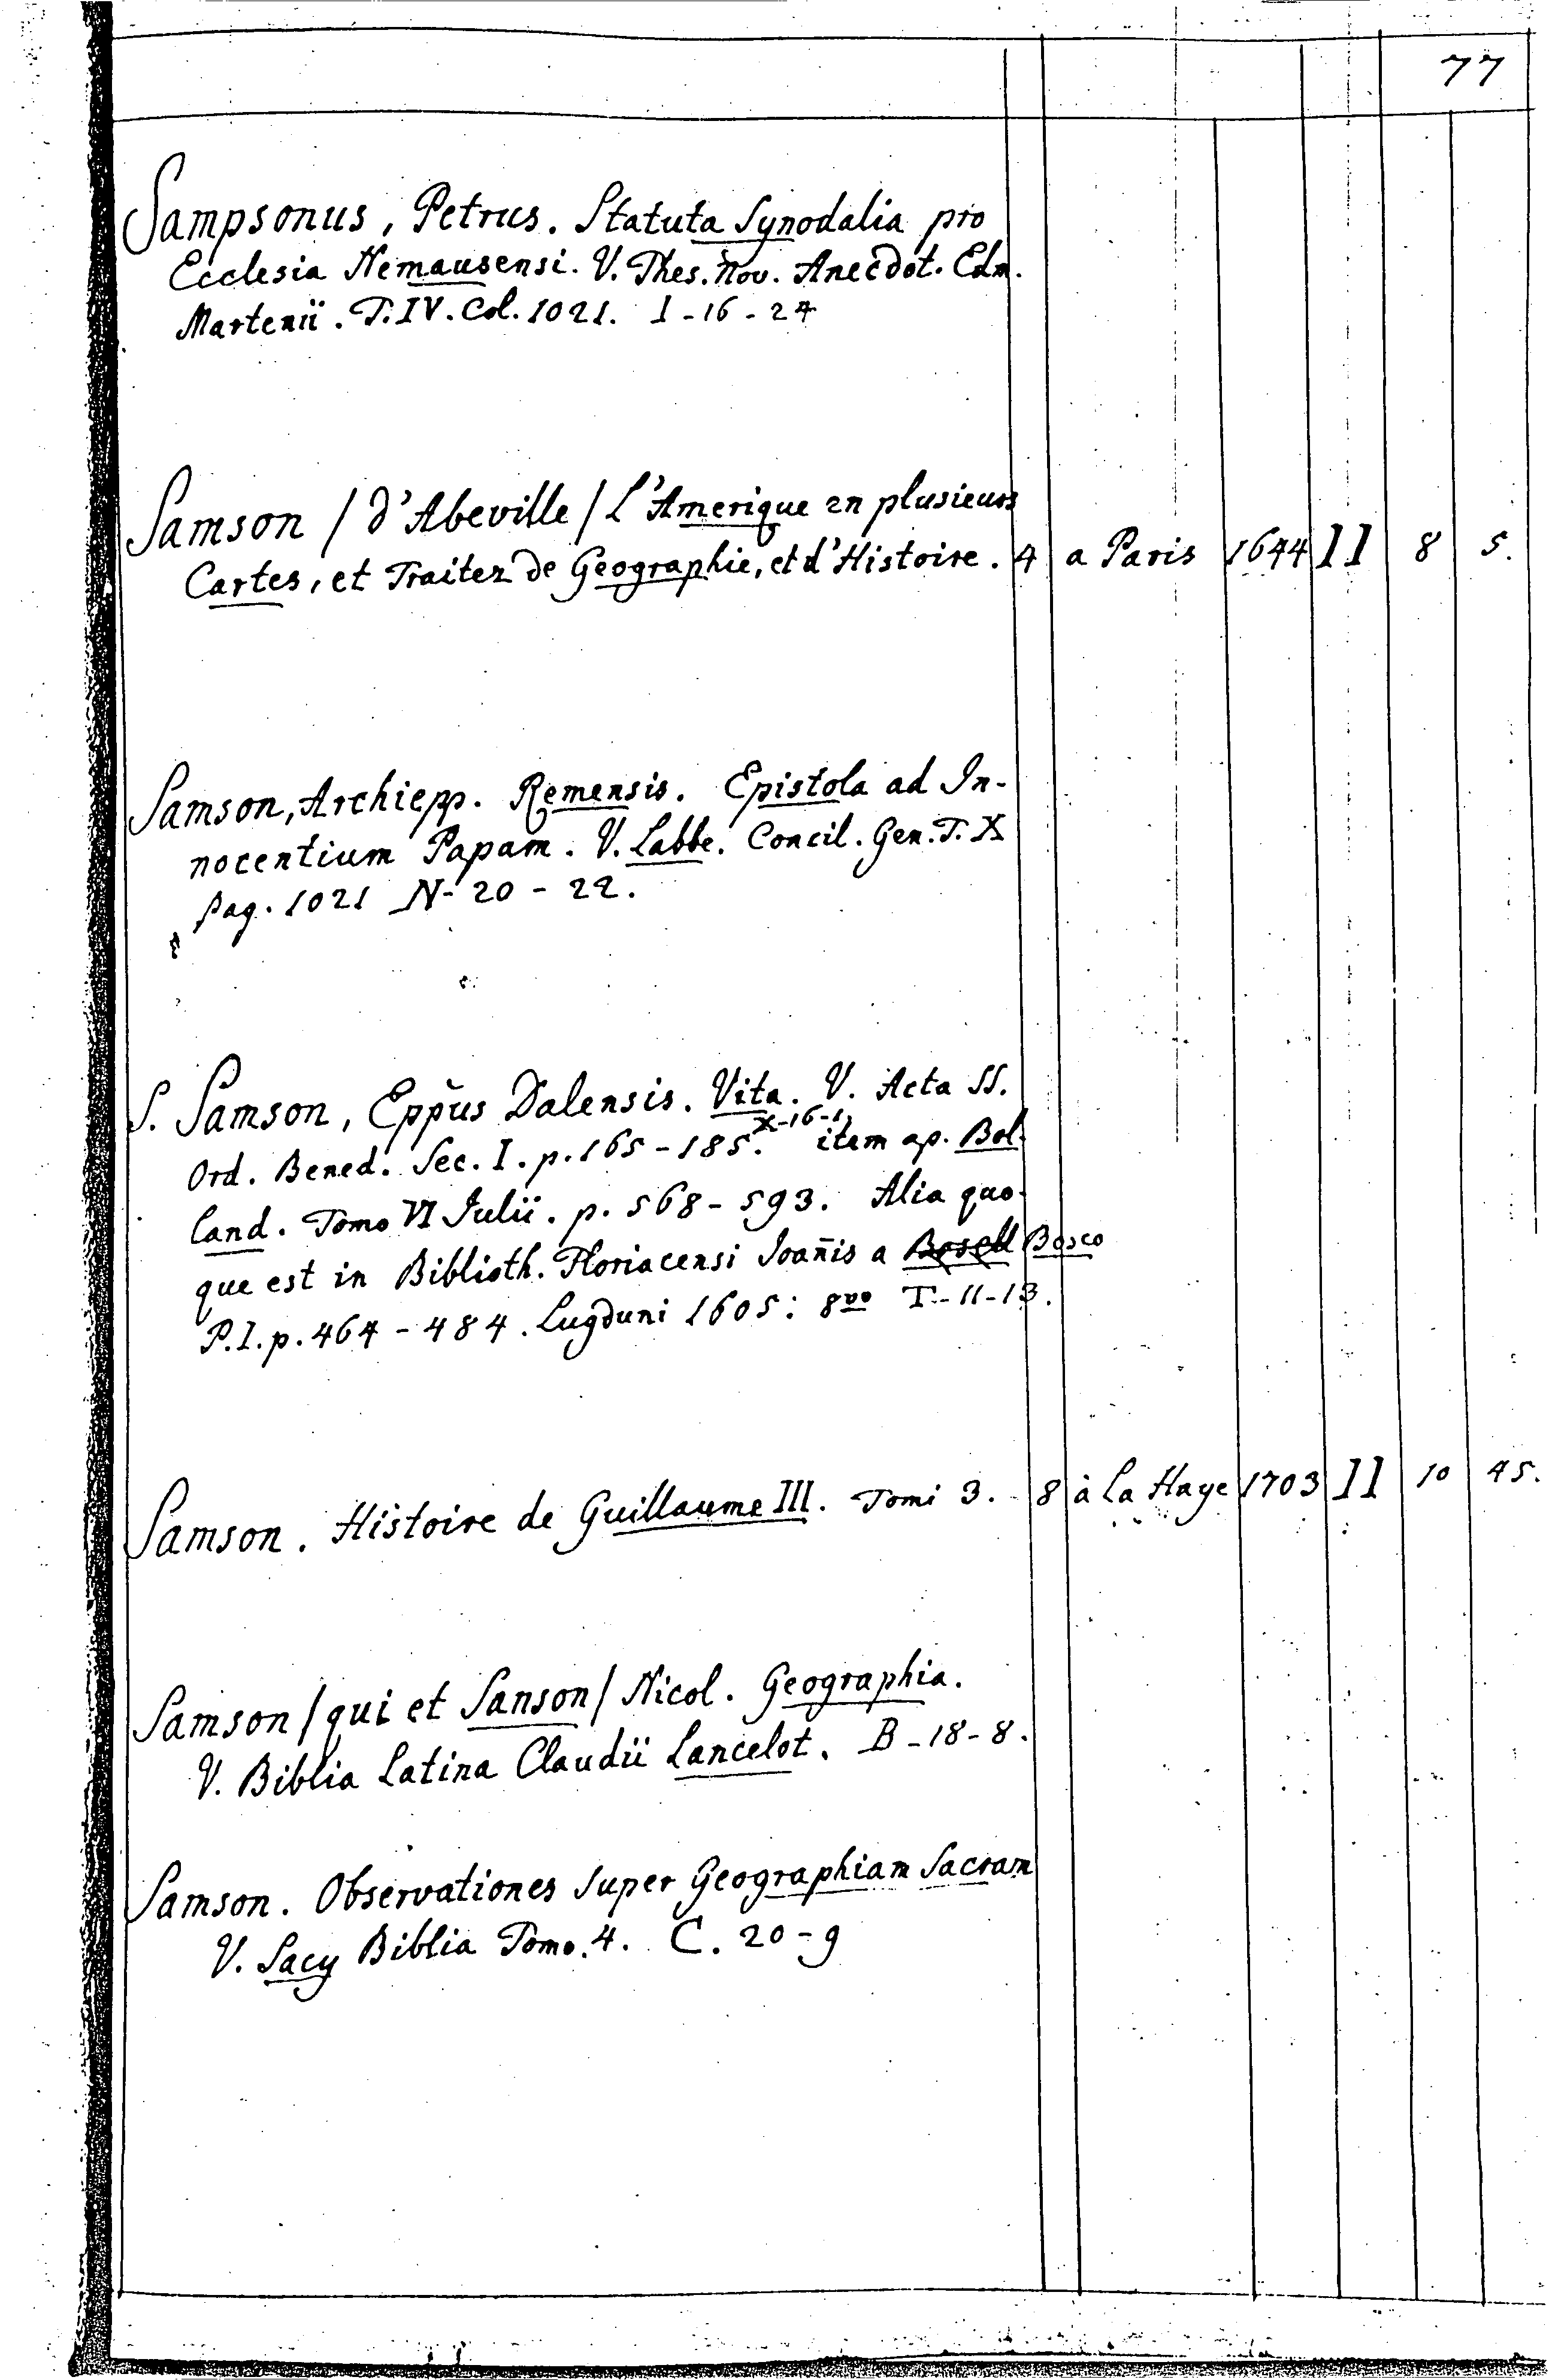 77
Sampsonus, Petrus. Statuta Synodalia pro
Ecclesia Nemausensi. V. Thes. Nov. Anecdot. Edm.
Martenii. T. IV. Col. 1021. I-16-24
Samson / d'Abeville / L'Amerique en plusieurs
Cartes, et Traitez de Geographie, et d'Histoire. 4 a Paris 1644 II 8 5.
Samson, Archiepp. Remensis. Epistola ad In-
nocentium Papam. V. Labbe. Concil. Gen. T. X
pag. 1021 N-20-22.
S. Samson, Eppus Dalensis. Vita. V. Acta SS.
Ord. Bened. Sec. I. p. 165-185. X-16-1. item ap. Bol-
land. Tomo VI Julii. p. 568-593. Alia quo-
que est in Biblioth. Floriacensi Joañis a Bosco
P. I. p. 464-484. Lugduni 1605: 8vo T-11-13.
Samson. Histoire de Guillaume III. Tomi 3. 8 à la Haye 1703 II 10 45.
Samson / qui et Sanson / Nicol. Geographia.
V. Biblia Latina Claudii Lancelot. B-18-8.
Samson. Observationes super Geographiam Sacram
V. Sacy Biblia Tomo. 4. C. 20-9